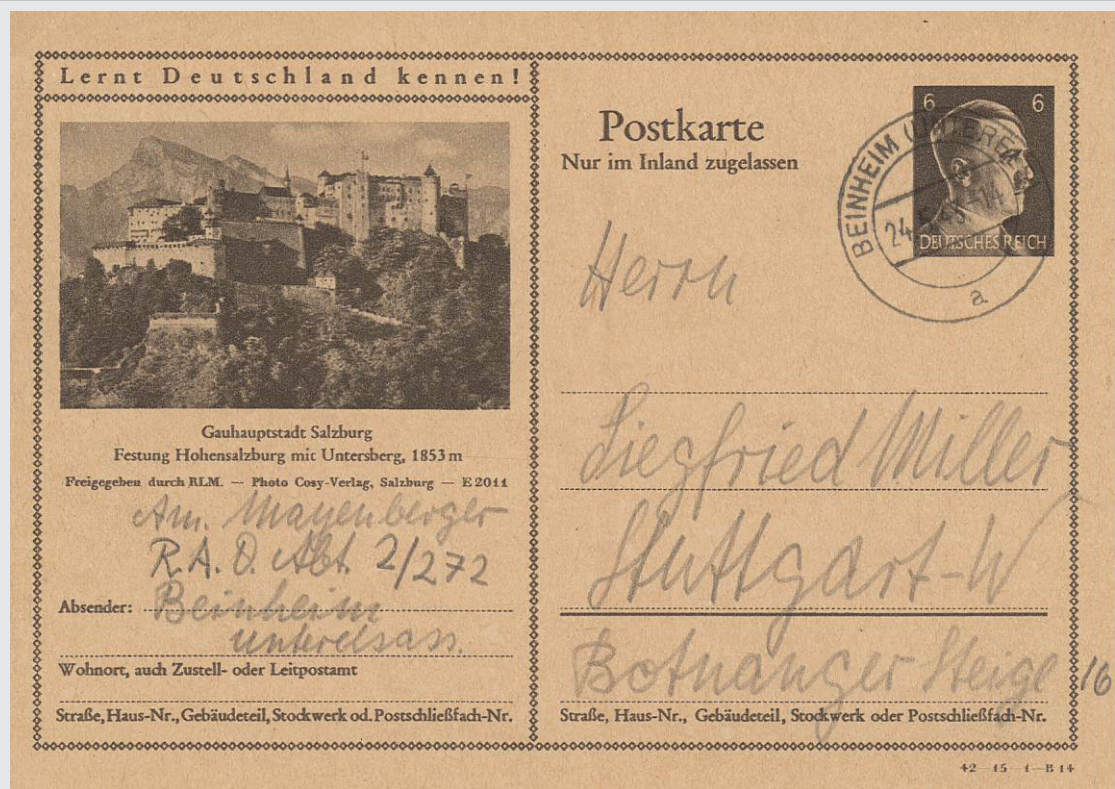 Lernt Deutschland kennen!
Gauhauptstadt Salzburg
Festung Hohensalzburg mit Untersberg, 1853 m
Freigegeben durch RLM. — Photo Cosy-Verlag, Salzburg — E 2011
Am. Mayenberger
R.A.D. Abt. 2/272
Absender: Beinheim
Unterelsass.
Wohnort, auch Zustell- oder Leitpostamt
Straße, Haus-Nr., Gebäudeteil, Stockwerk od. Postschließfach-Nr.
Postkarte
Nur im Inland zugelassen
6 6
DEUTSCHES REICH
BEINHEIM
a
Herrn
Siegfried Miller
Stuttgart-W
Botnanger Steige 16
Straße, Haus-Nr., Gebäudeteil, Stockwerk oder Postschließfach-Nr.
42 15 1 B 14